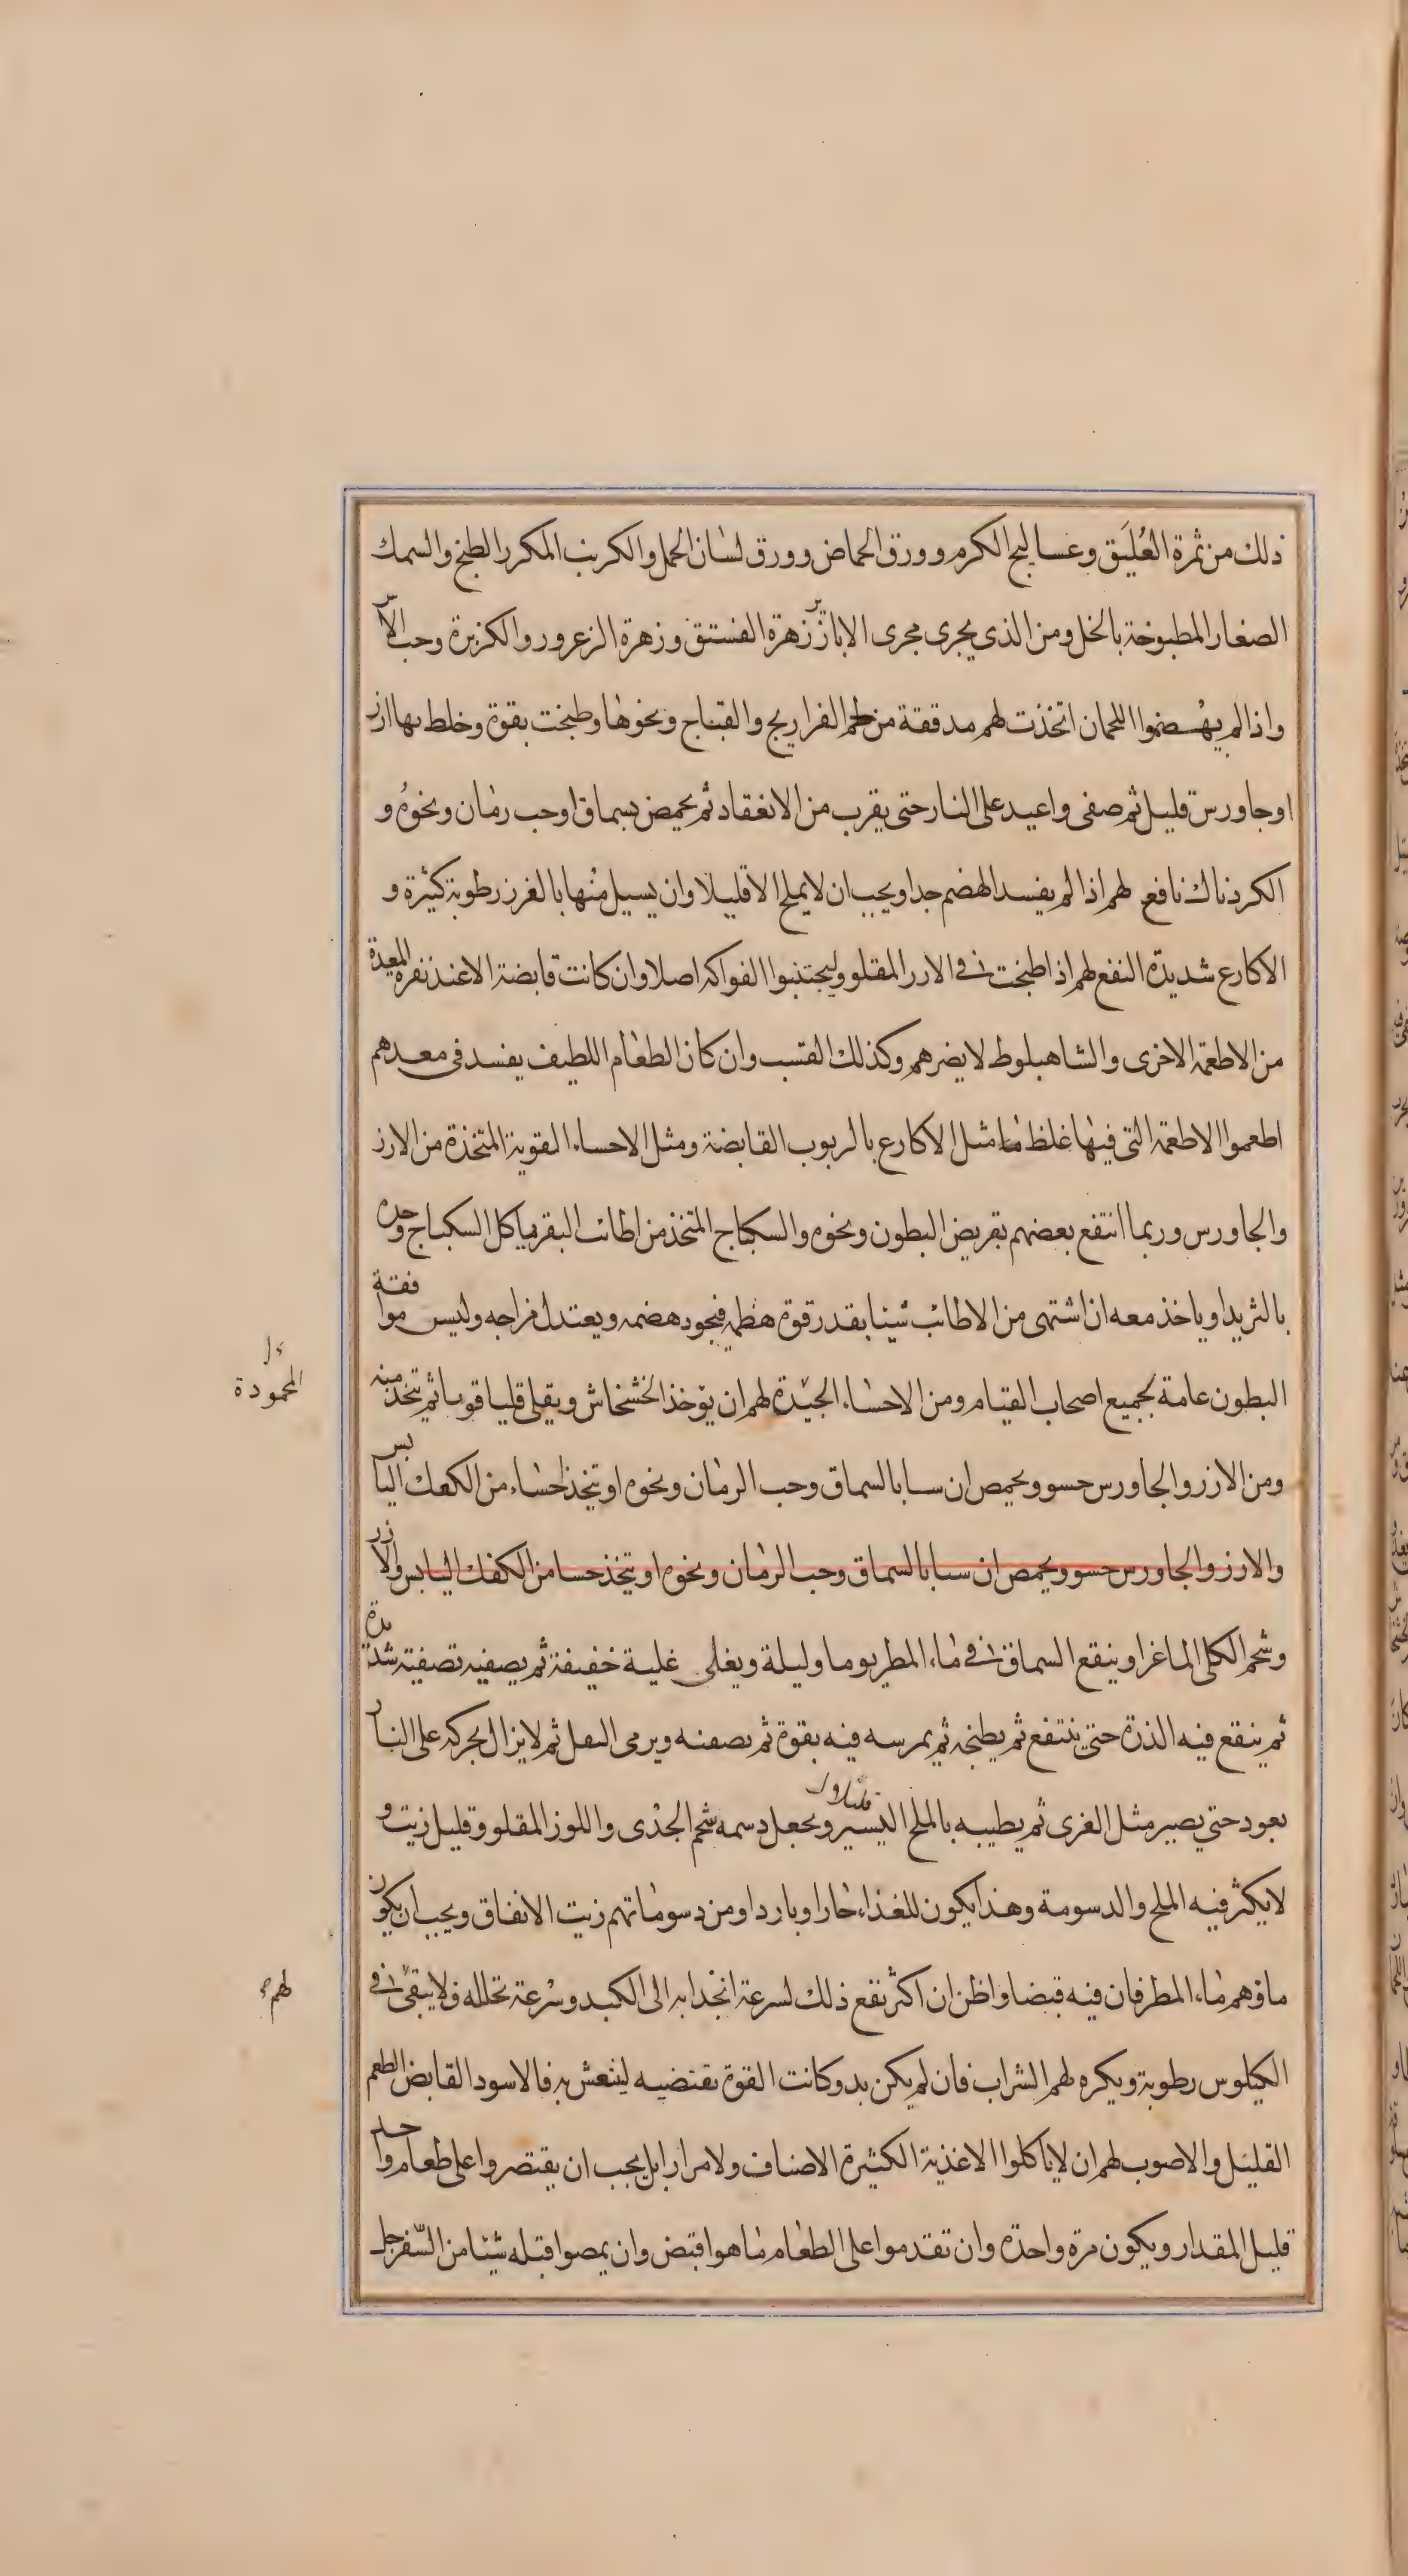 ذلك من ثمرة العُلَيق وعساليج الكرم وورق الحماض وورق لسان الحمل والكرنب المكرر الطبخ والسمك
الصغار المطبوخة بالخل ومن الذى يجرى مجرى الابازير زهرة الفستق وزهرة الزعرور والكزبرة وحب الاس
واذا لم يهضموا اللحمان اتخذت لهم مدققة من لحم الفراريج والقباج ونحوها وطبخت بقوة وخلط بها ارز
اوجاورس قليل ثم صفى واعيد على النار حتى يقرب من الانعقاد ثم يحمض بسماق اوحب رمان ونحوه و
الكردناك نافع لهم اذا لم يفسد الهضم جدا ويجب ان لا يملح الا قليلا وان يسيل منها بالغرز رطوبة كثيرة و
الاكارع شديدة النفع لهم اذا طبخت فى الارز المقلو وليجتنبوا الفواكه اصلا وان كانت قابضة الا عند نفرة المعدة
من الاطعمة الاخرى والشاهبلوط لا يضرهم وكذلك القسب وان كان الطعام اللطيف يفسد فى معدهم
اطعموا الاطعمة التى فيها غلظ ما مثل الاكارع بالربوب القابضة ومثل الاحساء القوية المتخذة من الارز
والجاورس وربما انتفع بعضهم بقريض البطون ونحوه والسكباج المتخذ من اطائب البقر ياكل السكباج وحده
بالثريد او ياخذ معه ان اشتهى من الاطائب شيئا بقدر قوة هضمه فيجود هضمه ويعتدل مزاجه وليس موافقة
البطون عامة لجميع اصحاب القيام ومن الاحساء الجيدة لهم ان يؤخذ الخشخاش ويقلى قليا قويا ثم تتخذ منه
المحمودة
ومن الارز والجاورس حسو ويحمص ان سيا بالسماق وحب الرمان ونحوه او تتخذ احساء من الكعك اليابس
والارز والجاورس حسو ويحمص ان سيا بالسماق وحب الرمان ونحوه او يتخذ حسا من الكعك اليابس والارز
وشحم الكلى الماغز او ينقع السماق فى ماء المطر يوما وليلة ويغلى غلية خفيفة ثم يصفيه تصفيته شديدة
ثم ينقع فيه الذرة حتى ينتفع ثم يطبخه ثم يمرسه فيه بقوة ثم يصفيه ويرمى الثفل ثم لا يزال يحركه على النار
بعود حتى يصير مثل الغرى ثم يطيبه بالملح اليسير ويجعل دسمه شحم الجدى واللوز المقلو وقليل زيت و
قليلا
لا يكثر فيه الملح والدسومة وهذا يكون للغذاء حارا وباردا ومن دسوماتهم زيت الانفاق ويجب ان يكون
ماؤهم ماء المطر فان فيه قبضا واظن ان اكثر نفع ذلك لسرعة انجذابه الى الكبد وسرعة تحلله فلا يبقى فى
لهم
الكيلوس رطوبة ويكره لهم الشراب فان لم يكن بد وكانت القوة تقتضيه لينتعش به فالاسود القابض الطعم
القليل والاصوب لهم ان لا ياكلوا الاغذية الكثيرة الاصناف ولا مرارا بل يجب ان يقتصروا على طعام واحد
قليل المقدار ويكون مرة واحدة وان تقدموا على الطعام ما هو اقبض وان يمصوا قبله شيئا من السفرجل